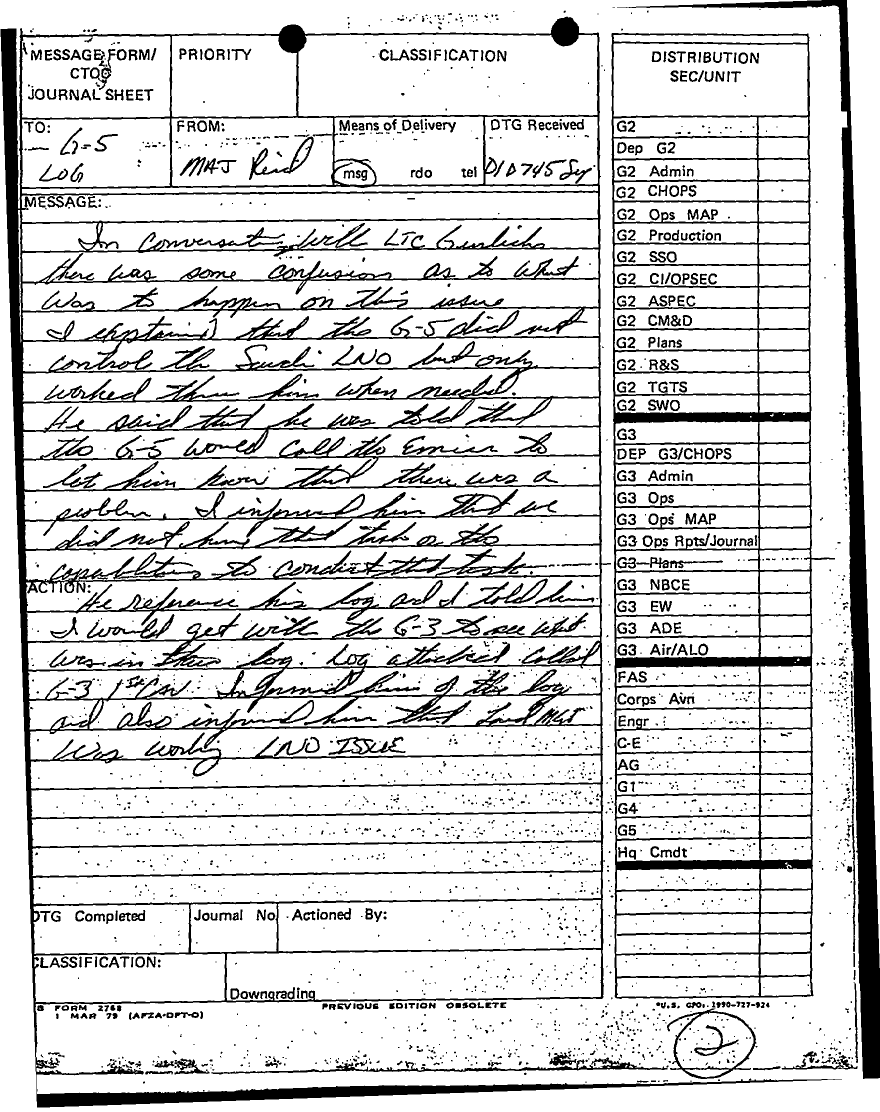 MESSAGE FORM/
CTOC
JOURNAL SHEET
PRIORITY
CLASSIFICATION
TO:
G-5
LOG
FROM:
MAJ Reid
Means of Delivery
msg rdo tel
DTG Received
010745 Sep
MESSAGE:
In conversation with LTC
there was some confusion as to what
was to happen on this issue
I explained that the G-5 did not
control the Saudi LNO but only
worked thru him when needed.
He said that he was told that
the G-5 would call the Emir to
let him know that there was a
problem. I informed him that we
did not have that task or the
capabilities to conduct that task.
ACTION:
He reference his log and I told him
I would get with the G-3 to see what
was in their log. Log attached called
G-3 1st Cav. Informed him of the log
and also informed him that Land MGT
was working LNO ISSUE
DTG Completed
Journal No
Actioned By:
CLASSIFICATION:
Downgrading
FORM 2768
1 MAR 79 (AFZA-DPT-O)
PREVIOUS EDITION OBSOLETE
DISTRIBUTION
SEC/UNIT
G2
Dep G2
G2 Admin
G2 CHOPS
G2 Ops MAP
G2 Production
G2 SSO
G2 CI/OPSEC
G2 ASPEC
G2 CM&D
G2 Plans
G2 R&S
G2 TGTS
G2 SWO
G3
DEP G3/CHOPS
G3 Admin
G3 Ops
G3 Ops MAP
G3 Ops Rpts/Journal
G3 Plans
G3 NBCE
G3 EW
G3 ADE
G3 Air/ALO
FAS
Corps Avn
Engr
C-E
AG
G1
G4
G5
Hq Cmdt
*U.S. GPO: 1990-727-924
2